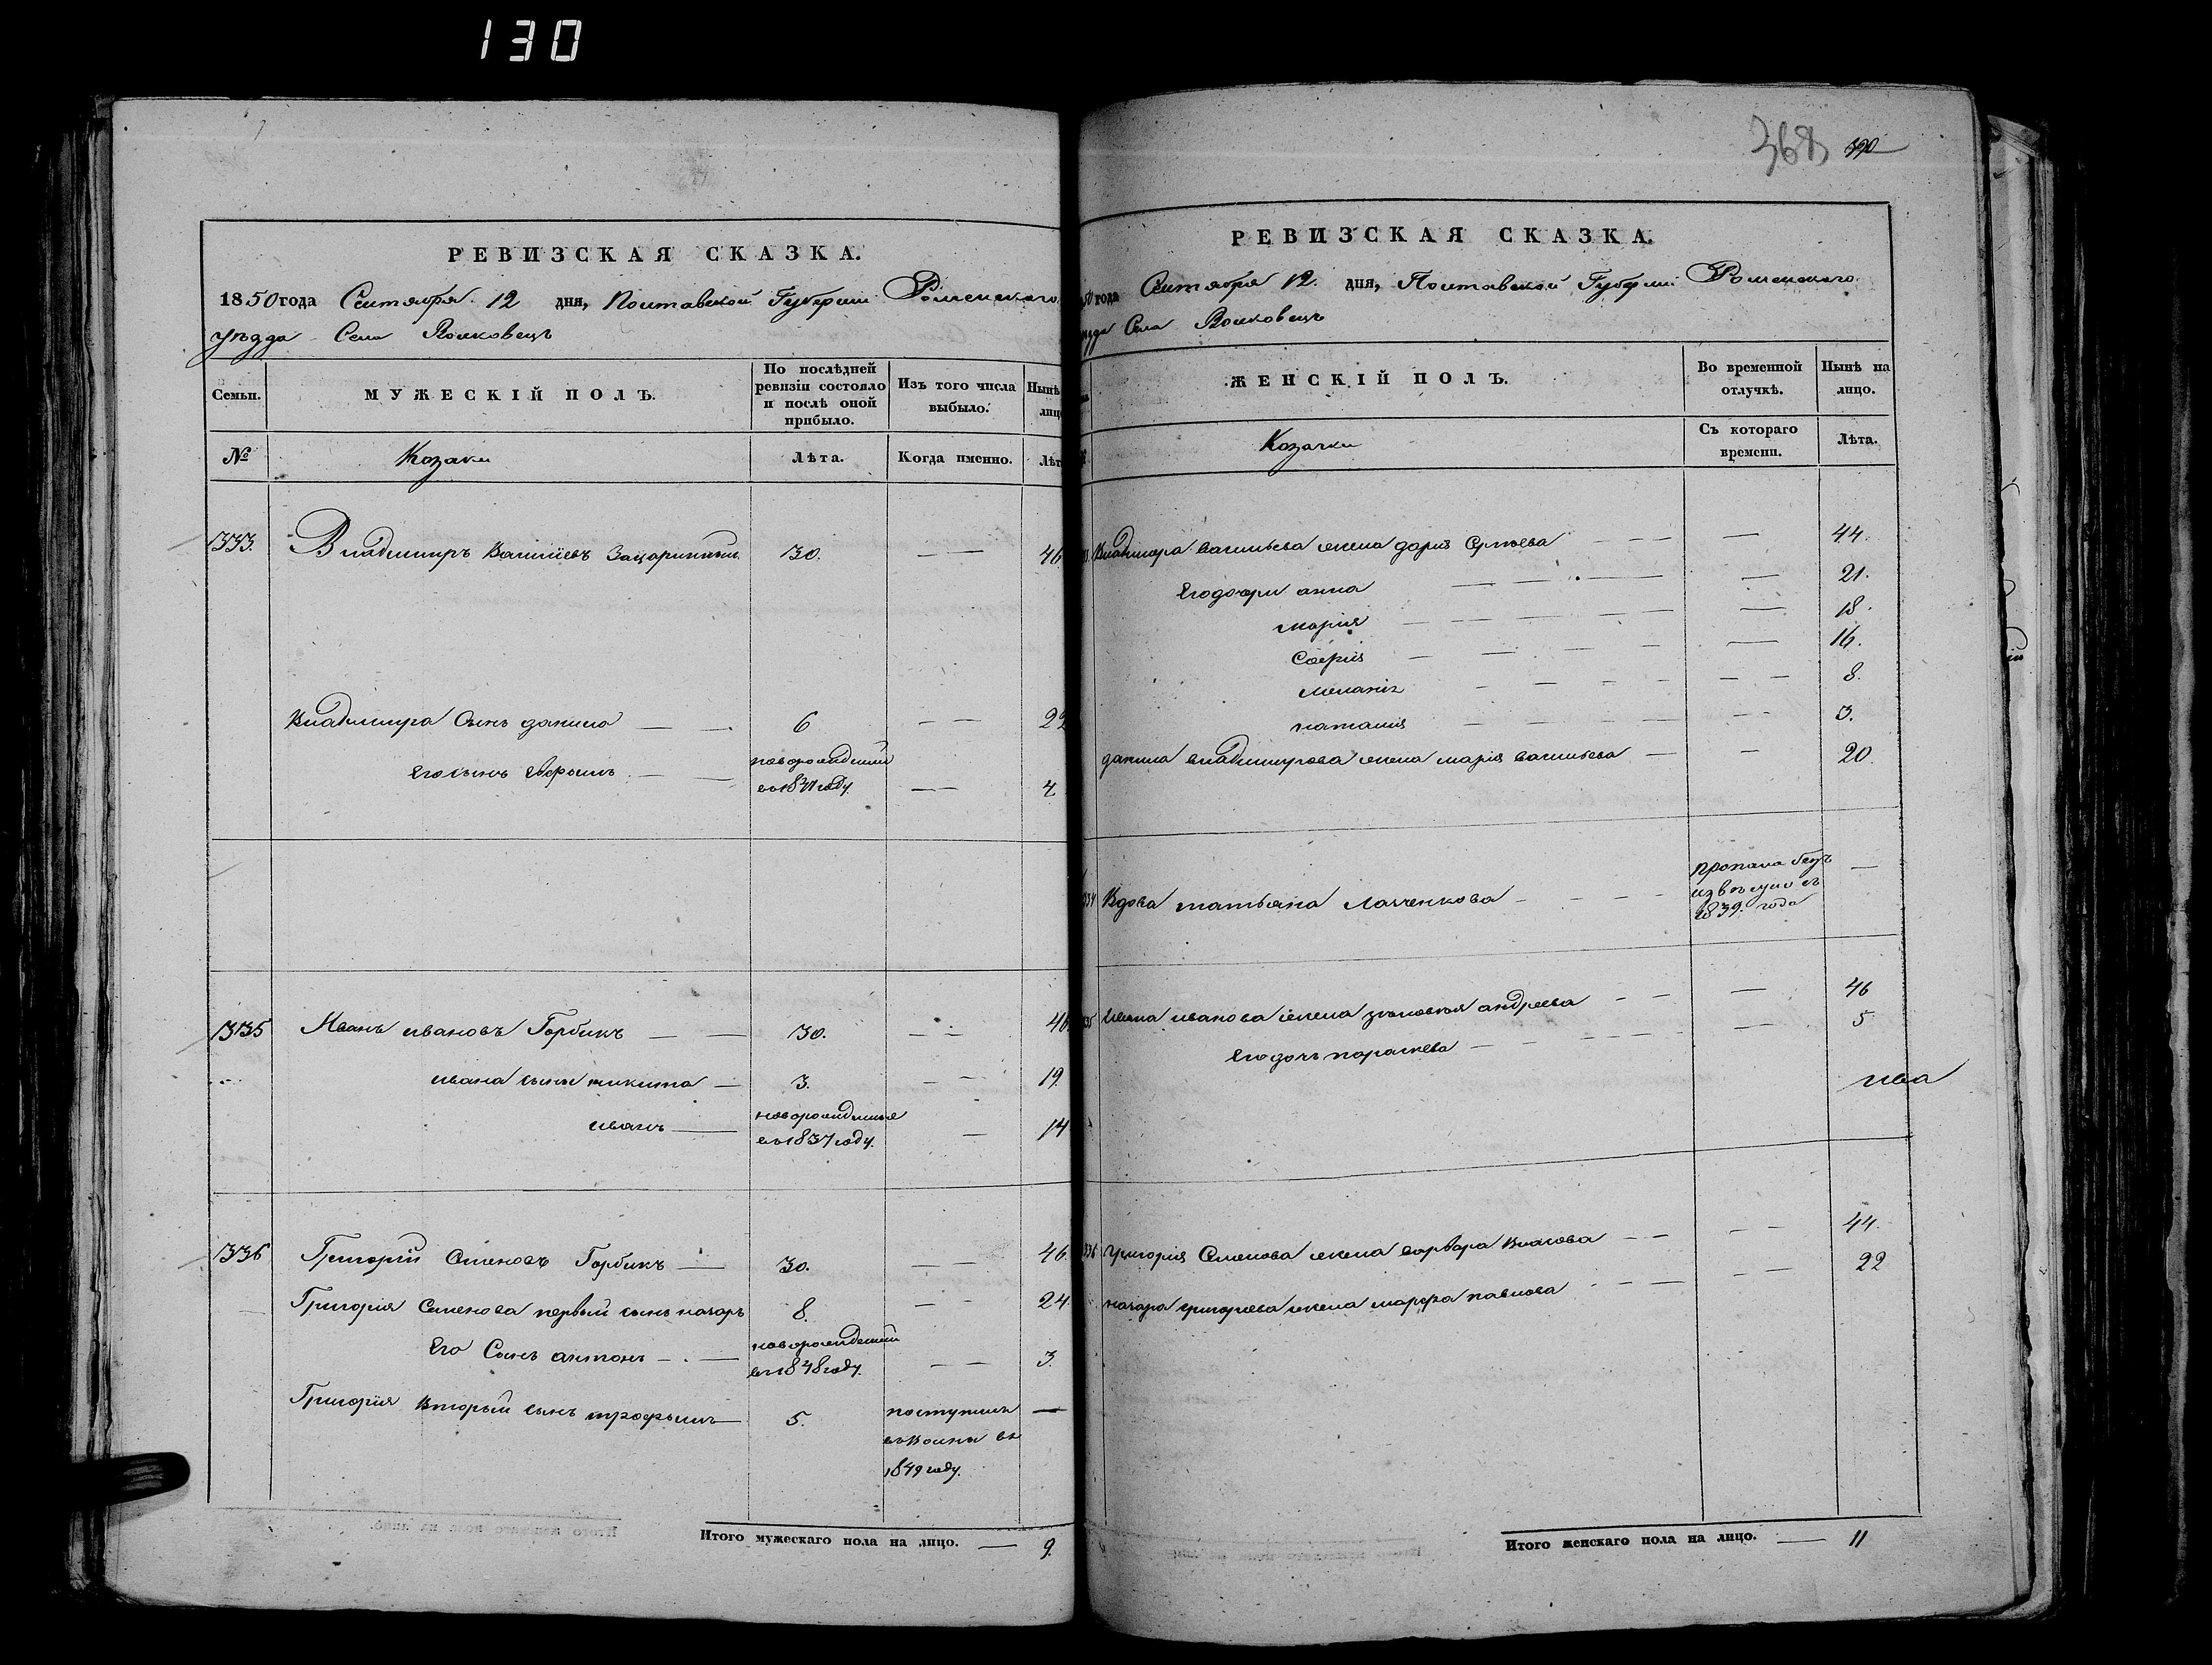 130
РЕВИЗСКАЯ СКАЗКА.
1850 года Сентября 12 дня, Полтавской Губернии Роменского
уѣзда Села Волковецъ
Семьи.
МУЖЕСКІЙ ПОЛЪ.
По послѣдней ревизіи состояло и послѣ оной прибыло.
Изъ того числа выбыло.
Нынѣ
лицо
№
Козаки
Лѣта.
Когда именно.
Лѣт
333. Владимиръ Васильевъ 30. — — 46
Владимира Сынъ данило — — 6 — — 22
Его сынъ Евфимъ — — новорожденный — — 4
335 Иванъ ивановъ Горбикъ — — 30. — — 46
ивана сыны никита — 3. — — 19.
иванъ — новорожденные въ 1837 году. — 14
336 Григорій Семеновъ Горбикъ — 30. — — 46
Григорія Семенова первый сынъ назаръ 8. — — 24.
Его Сынъ антонъ — — новорожденный въ 1848 году. — — 3.
Григорія Вторый сынъ трофимъ — 5. поступилъ въ 1849 году. —
Итого мужескаго пола на лицо. — 9.
368 390
РЕВИЗСКАЯ СКАЗКА.
50 года Сентября 12. дня, Полтавской Губерніи Роменского
уѣзда Села Волковецъ
ЖЕНСКІЙ ПОЛЪ.
Во временной отлучкѣ.
Нынѣ на лицо.
Козачки
Съ котораго времени.
Лѣта.
Владимира васильева жена дарія — — 44.
Его дочери анна — — 21.
марія — — 18.
Софія — — 16.
меланія — — 8.
наталія — — 3.
данила владимирова жена марія васильева — — 20.
334 Вдова татьяна — пропала безъ извѣстно съ 1839. года —
335 ивана иванова жена зѣновія андреева — — 46
Его дочь параскева — — 5
ива
336 григорія Семенова жена варвара Власова — — 44.
назара григорьева жена марфа павлова — — 22
Итого женскаго пола на лицо. — 11